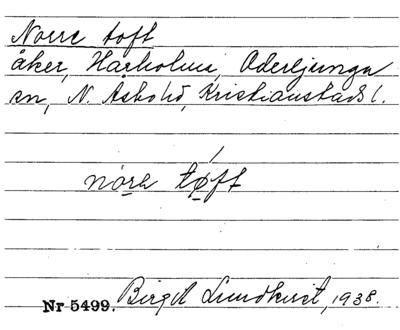 Norra toft
åker, Harholma, Oderljunga
sn, N. Åsbo hd, Kristianstads l.
nǫra tø̱ft
Nr 5499. Birgit Lundkvist, 1938.